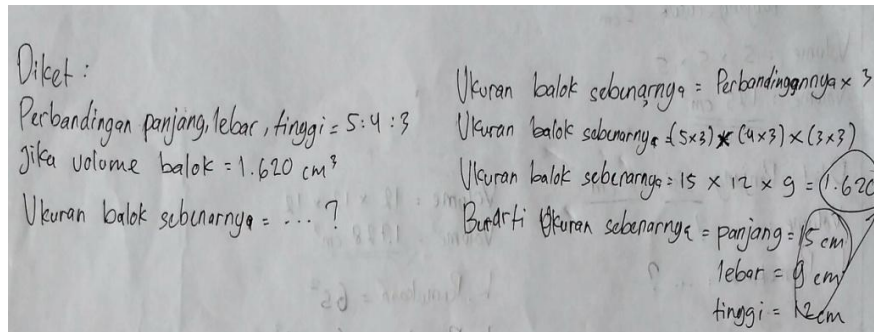 Diket :
Perbandingan panjang, lebar, tinggi = 5 : 4 : 3
Jika volume balok = 1.620 cm³
Ukuran balok sebenarnya = ... ?
Ukuran balok sebenarnya = Perbandingannya x 3
Ukuran balok sebenarnya = (5x3) x (4x3) x (3x3)
Ukuran balok sebenarnya = 15 x 12 x 9 = 1.620
Berarti Ukuran sebenarnya = panjang = 15 cm
lebar = 9 cm
tinggi = 12 cm